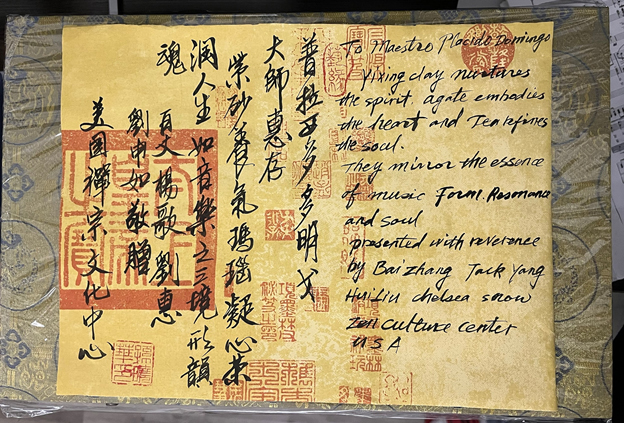 普拉西多多明戈
大師惠存
紫砂養氣瑪瑙凝心茶
潤人生如音樂之三境形韻
魂
百丈楊歌劉惠
劉如敬贈
美国禪宗文化中心
To Maestro Placido Domingo
Yixing clay nurtures
the spirit, agate embodies
the heart and Tea refines
the soul.
They mirror the essence
of music Form. Resonance
and soul
presented with reverence
by Baizhang Jack Yang
Hui Liu chelsea snow
Zen culture center
USA